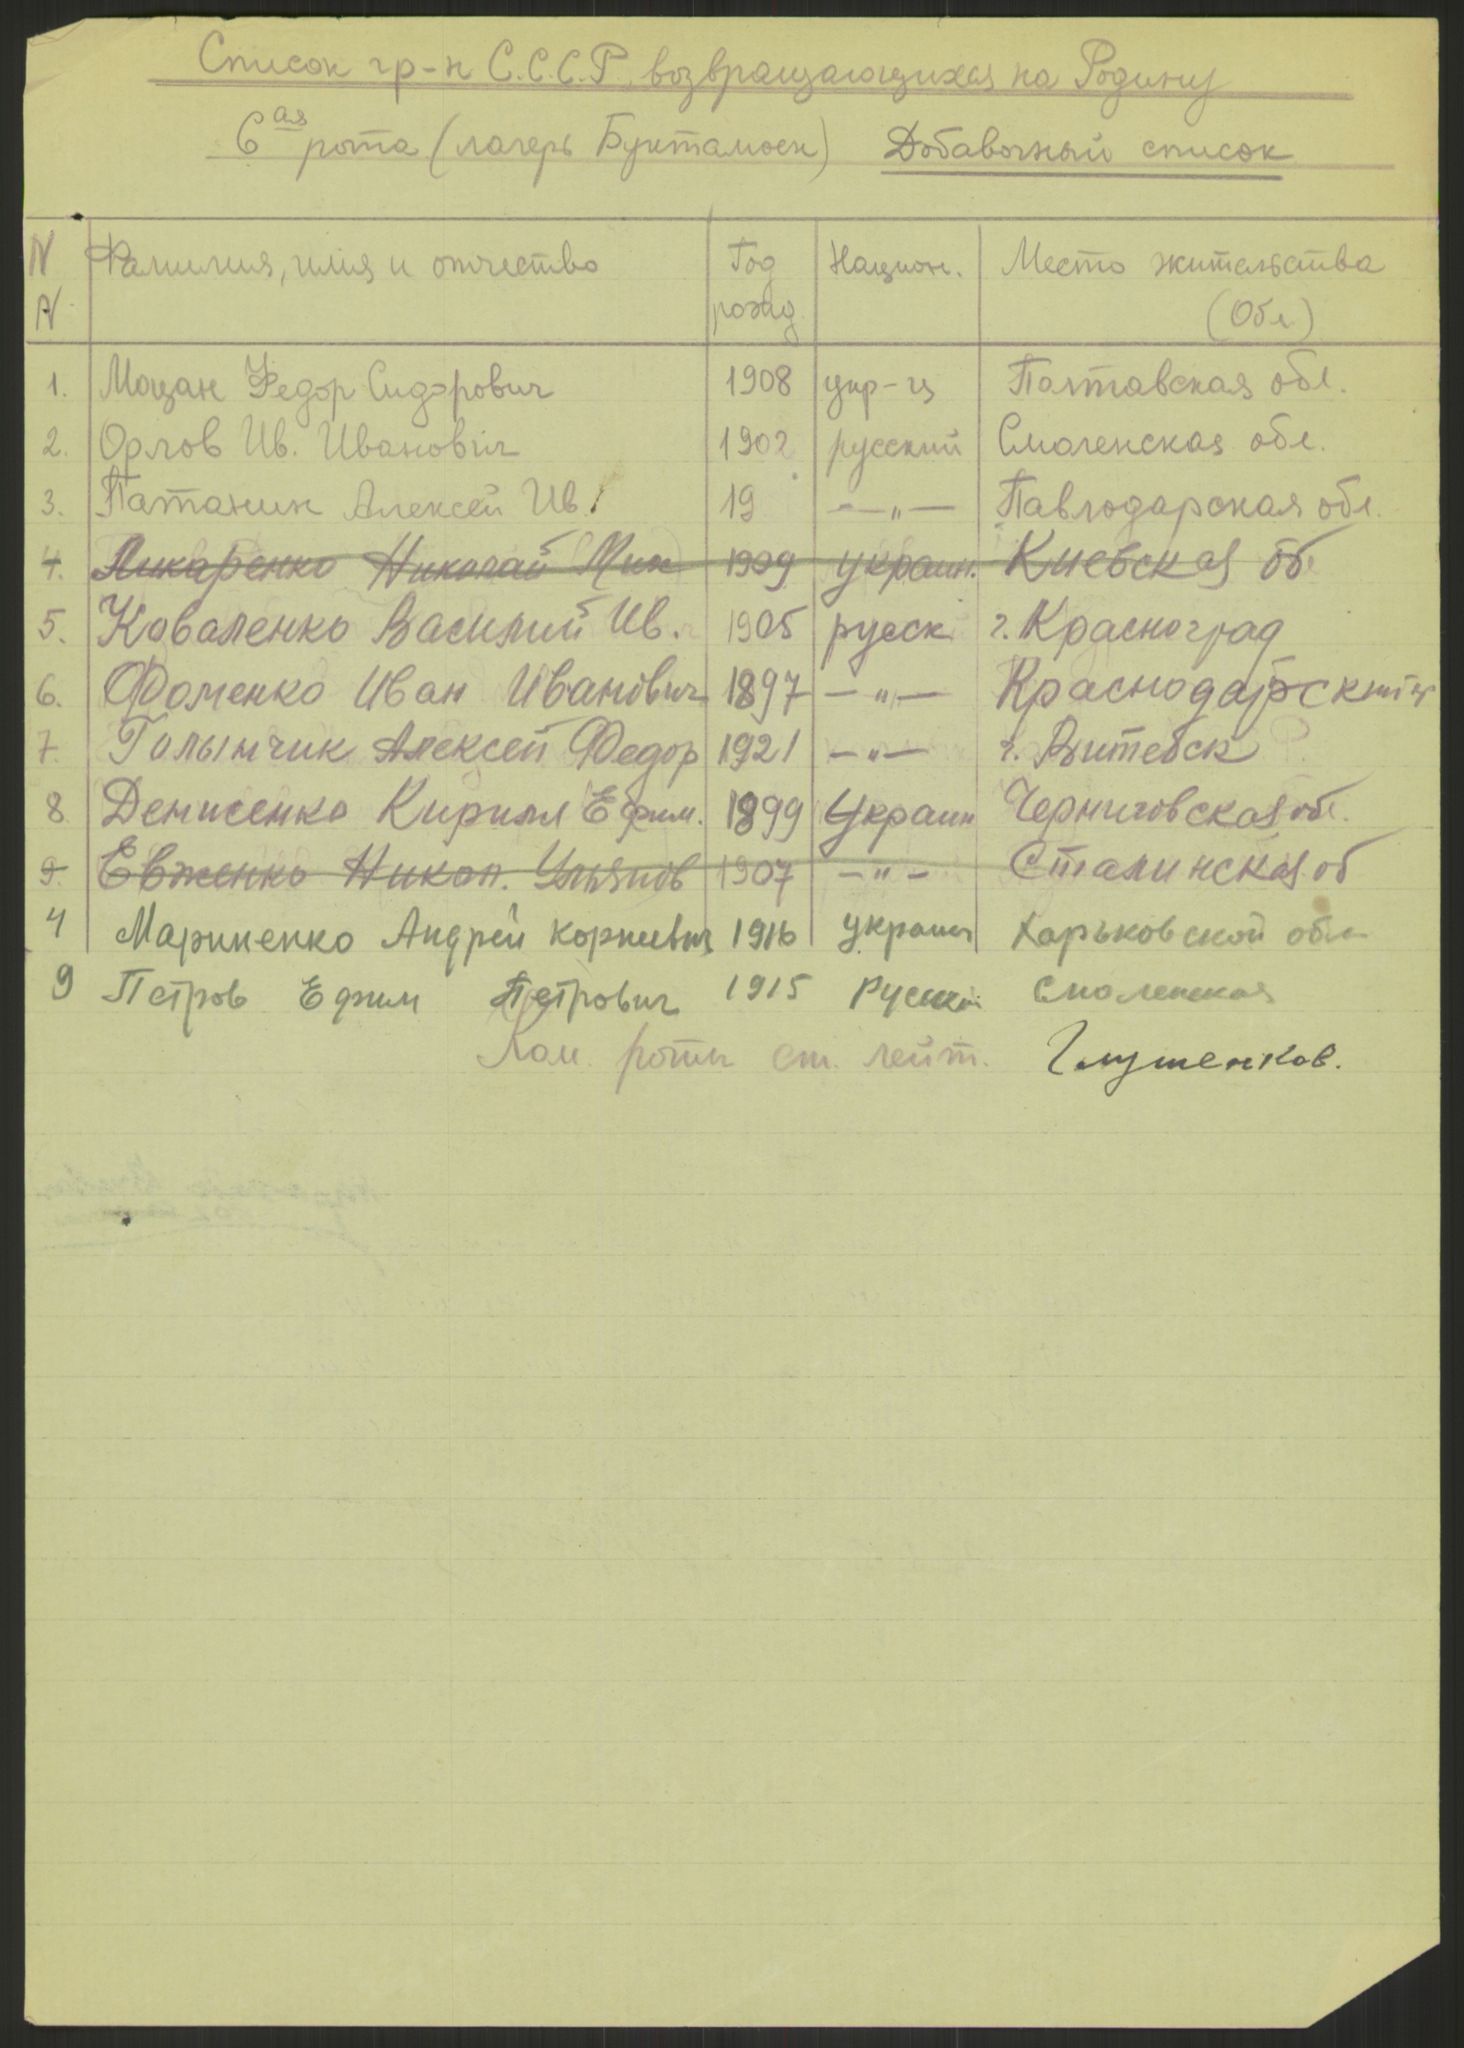 Список гр-н С.С.С.Р., возвращающихся на Родину
6ая рота (лагерь Буктамоен) Добавочный список
N N Фамилия, имя и отчество Год рожд. Национ. Место жительства (Обл.)
1. Моцан Федор Сидорович 1908 укр-ц Полтавская обл.
2. Орлов Ив. Иванович 1902 русский Смоленская обл.
3. Патанин Алексей Ив. 19 —"— Павлодарская обл.
4. Ликаренко Николай Мих 1909 украин. Киевская об.
5. Коваленко Василий Ив. 1905 русск г. Красноград
6. Фоменко Иван Иванович 1897 —"— Краснодарский
7. Голынчик Алексей Федор 1921 —"— г. Витебск
8 Денисенко Кирилл Ефим. 1899 Украин Черниговская обл.
9. Евженко Никол. Ульянов 1907 —"— Сталинская об
4 Мариненко Андрей Корнеевич 1916 украин Харьковской обл
9 Петров Ефим Петрович 1915 Русский Смоленская
Ком. роты ст. лейт. Глушенков.